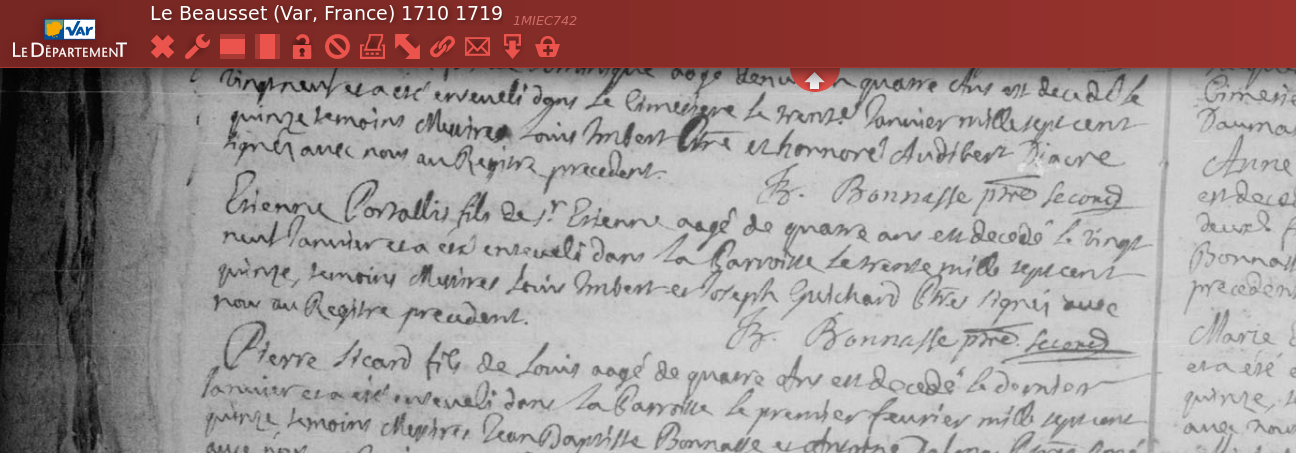 Le Beausset (Var, France) 1710 1719 1MIEC742
VAR
LE DÉPARTEMENT
aagé denviron quatre Ans est decedé le
vingtneuf et a eté enseveli dans le Cimetiere le trante Janvier mille sept cent
quinze temoins Messires Louis Imbert Ptre et honnoré Audibert Diacre
signés avec nous au Registre precedent.
Bonnasse ptre second
Etienne Portallis fils de sr Etienne aagé de quatre ans est decedé le vingt
neuf Janvier et a eté enseveli dans la Parroisse le trante mille sept cent
quinze, temoins Messires Louis Imbert et Joseph Guichard Ptres signés avec
nous au Registre precedent.
Bonnasse ptre second
Pierre Sicard fils de Louis aagé de quatre Ans est decedé le dernier
Janvier et a eté enseveli dans la Parroisse le premier fevrier mille sept cent
quinze, temoins Messires Jean Baptiste Bonnasse et Antoine
avec nous
Cimetie
Dauma
Anne
est dece
deux
Bonnass
precedent
Marie
et a eté e
quinze,
avec nou